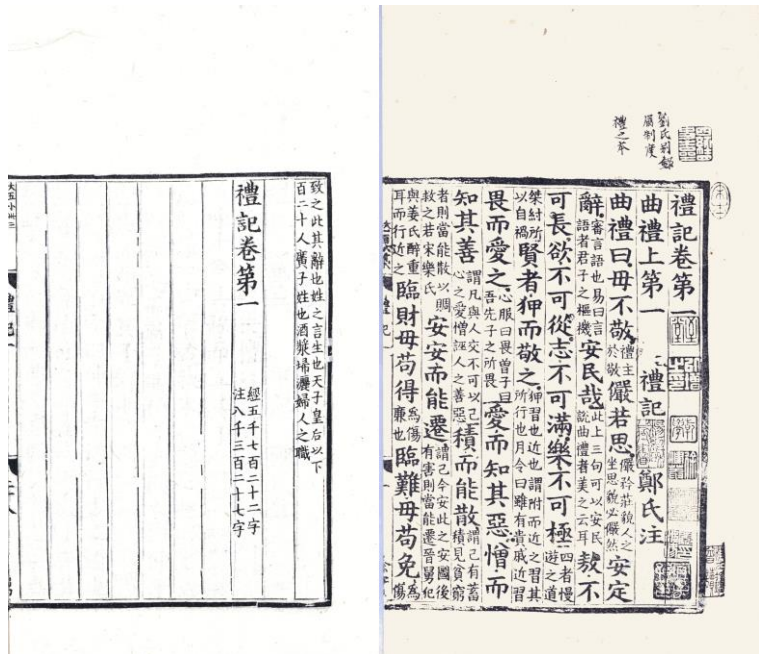 劉氏別錄
屬制度
禮之
禮記卷第一
曲禮上第一 禮記 鄭氏注
曲禮曰毋不敬禮主於敬儼若思儼矜莊貌人之坐思貌必儼然安定
辭審言語也易曰言語者君子之樞機安民哉此上三句可以安民說曲禮者美之云耳敖不
可長欲不可從志不可滿樂不可極四者慢遊之道
桀紂所以自禍賢者狎而敬之狎習也近也謂附而近之習其所行也月令曰雖有貴戚近習
畏而愛之心服曰畏曾子曰吾先子之所畏愛而知其惡憎而
知其善謂凡與人交不可以己心之愛憎誣人之善惡積而能散謂己有蓄積見貧窮
者則當能散以賙救之若宋樂氏安安而能遷謂己今安此之安圖後有害則當能遷晉舅犯
與姜氏醉重耳而行近之臨財毋苟得為傷廉也臨難毋苟免為傷
致之此其辭也姓之言生也天子皇后以下
百二十人廣子姓也酒漿埽灑婦人之職
禮記卷第一
經五千七百二十二字
注八千三百二十七字